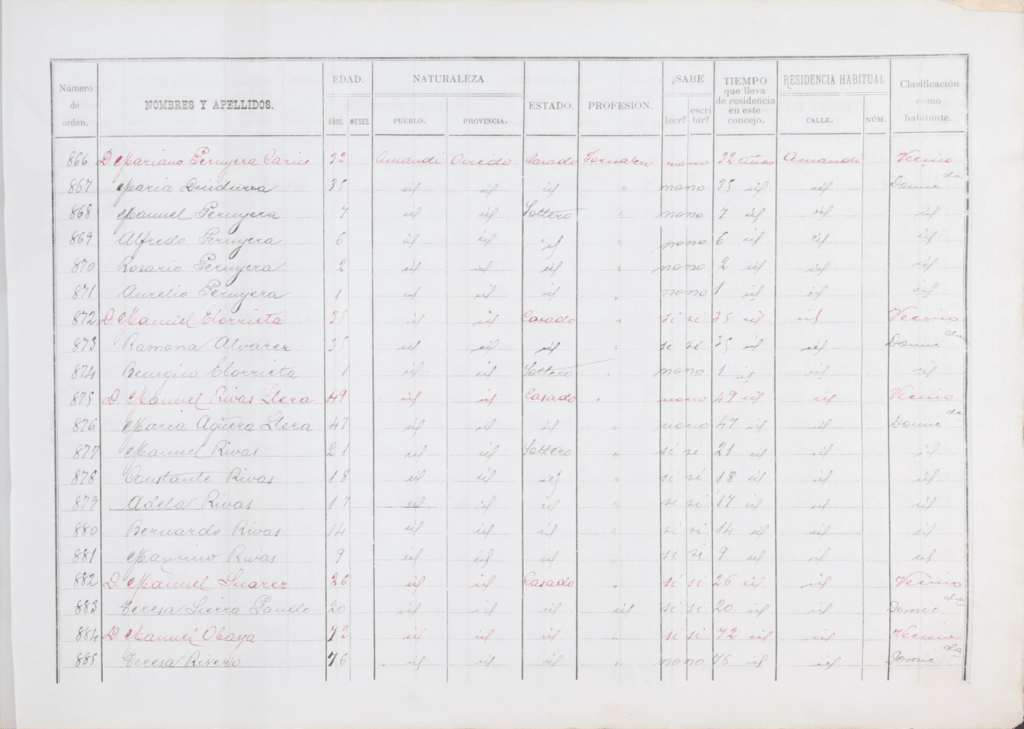 Número de orden. NOMBRES Y APELLIDOS. EDAD. AÑOS. MESES. NATURALEZA PUEBLO. PROVINCIA. ESTADO. PROFESION. ¿SABE leer? escribir? TIEMPO que lleva de residencia en este concejo. RESIDENCIA HABITUAL CALLE. NÚM. Clasificación como habitante.
866 D. Mariano Peruyera 32 Amandi Oviedo Casado no no 32 años Amandi Vecino
867 Maria 35 id id id " no no 35 id id Domic da
868 Manuel Peruyera 7 id id Soltero " no no 7 id id id
869 Alfredo Peruyera 6 id id id " no no 6 id id id
870 Rosario Peruyera 2 id id id " no no 2 id id id
871 Aurelio Peruyera 1 id id id " no no 1 id id id
872 D. Manuel Elorrieta 35 id id Casado " si si 35 id id Vecino
873 Ramona Alvarez 35 id id id " si si 35 id id Domic da
874 Benigno Elorrieta 1 id id Soltero " no no 1 id id id
875 D. Manuel Rivas Llera 49 id id Casado " no no 49 id id Vecino
876 Maria Agüera Llera 47 id id id " no no 47 id id Domic da
877 Manuel Rivas 21 id id Soltero " si si 21 id id id
878 Constante Rivas 18 id id id " si si 18 id id id
879 Adela Rivas 17 id id id " si si 17 id id id
880 Bernardo Rivas 14 id id id " si si 14 id id id
881 Rivas 9 id id id " si si 9 id id id
882 D. Manuel Suarez 26 id id Casado " si si 26 id id Vecino
883 Teresa Sierra 20 id id id id si si 20 id id Domic da
884 D. Manuel Obaya 72 id id id " si si 72 id id Vecino
885 Teresa Rivero 76 id id id " no no 76 id id Domic da